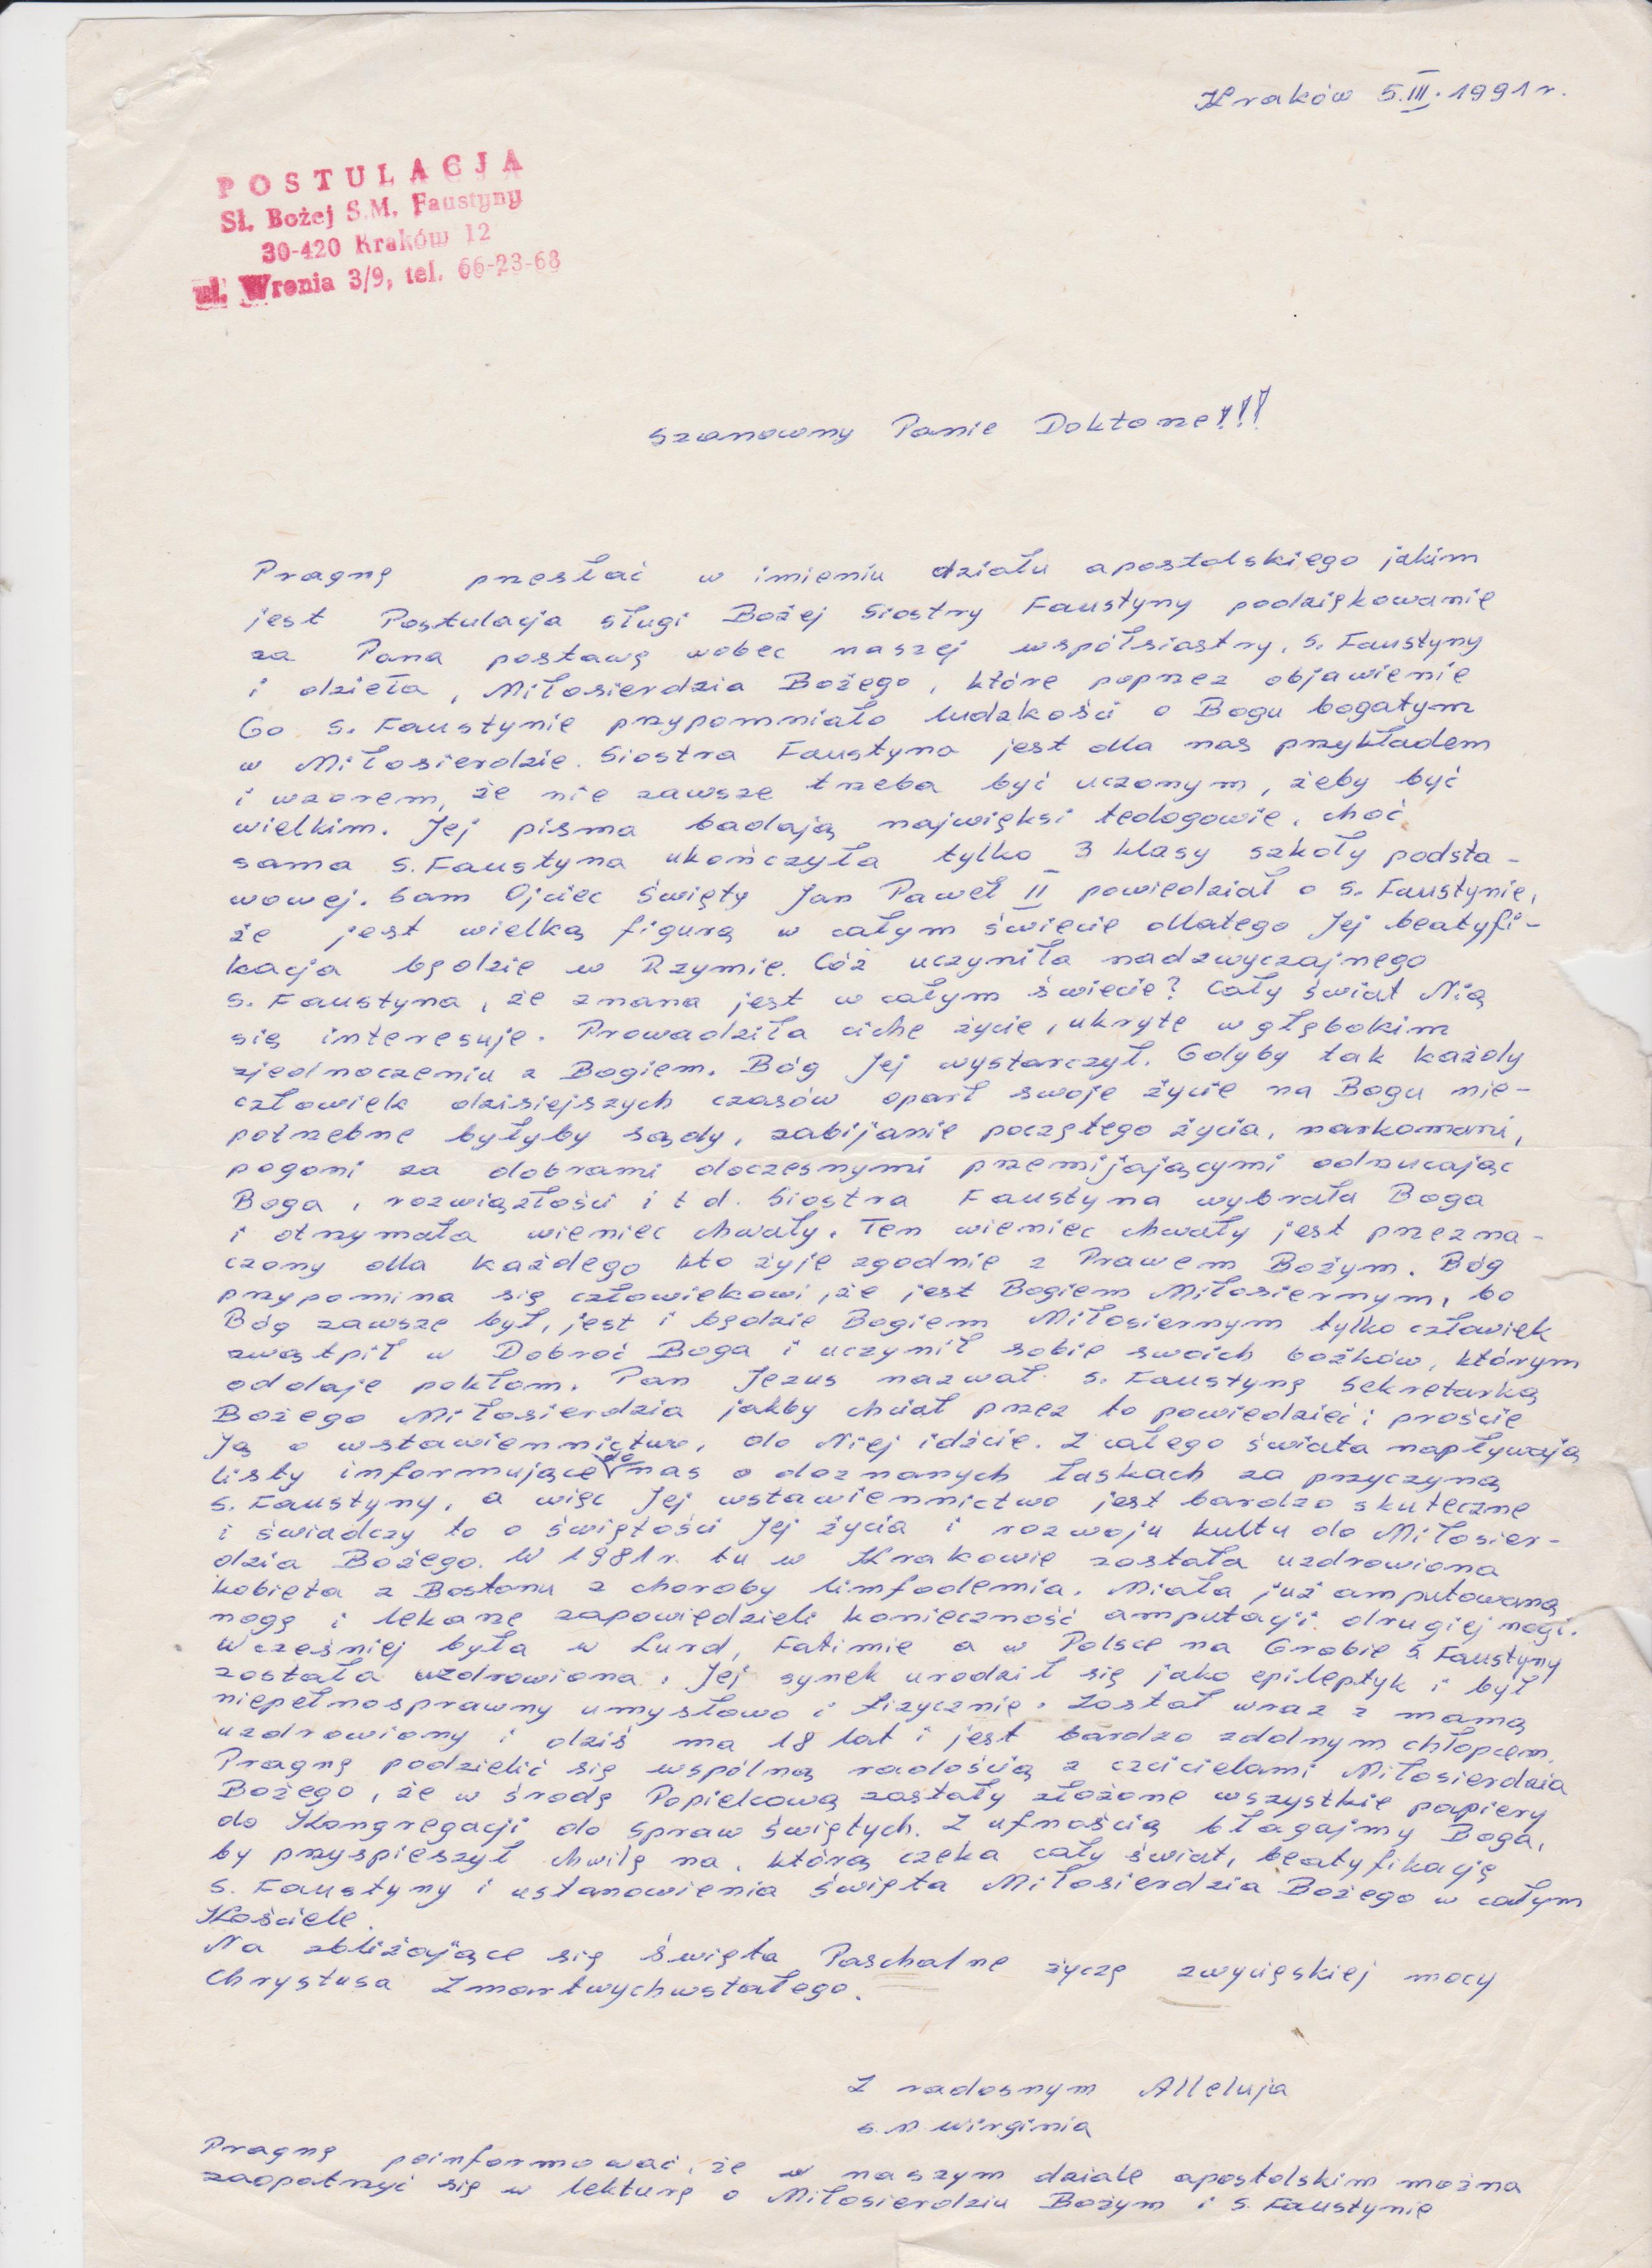 Kraków 5.III.1991r.
POSTULACJA
Sł. Bożej S.M. Faustyny
30-420 Kraków 12
ul. Wronia 3/9, tel. 66-23-68
Szanowny Panie Doktorze!!!
Pragnę przesłać w imieniu działu apostolskiego jakim
jest Postulacja sługi Bożej Siostry Faustyny podziękowanie
za Pana postawę wobec naszej współsiostry, S. Faustyny
i dzieła, Miłosierdzia Bożego, które poprzez objawienie
Go S. Faustynie przypomniało ludzkości o Bogu bogatym
w Miłosierdzie. Siostra Faustyna jest dla nas przykładem
i wzorem, że nie zawsze trzeba być uczonym, żeby być
wielkim. Jej pisma badają najwięksi teologowie, choć
sama S. Faustyna ukończyła tylko 3 klasy szkoły podsta-
wowej. Sam Ojciec Święty Jan Paweł II powiedział o S. Faustynie,
że jest wielką figurą w całym świecie dlatego Jej beatyfi-
kacja będzie w Rzymie. Cóż uczyniła nadzwyczajnego
S. Faustyna, że znana jest w całym świecie? Cały świat Nią
się interesuje. Prowadziła ciche życie, ukryte w głębokim
zjednoczeniu z Bogiem. Bóg Jej wystarczył. Gdyby tak każdy
człowiek dzisiejszych czasów oparł swoje życie na Bogu nie-
potrzebne byłyby sądy, zabijanie poczętego życia, narkomani,
pogoni za dobrami doczesnymi przemijającymi odrzucając
Boga, rozwiązłości i t d. Siostra Faustyna wybrała Boga
i otrzymała wieniec chwały. Ten wieniec chwały jest przezna-
czony dla każdego kto żyje zgodnie z Prawem Bożym. Bóg
przypomina się człowiekowi, że jest Bogiem Miłosiernym, bo
Bóg zawsze był, jest i będzie Bogiem Miłosiernym tylko człowiek
zwątpił w Dobroć Boga i uczynił sobie swoich bożków, którym
oddaje pokłon. Pan Jezus nazwał S. Faustynę Sekretarką
Bożego Miłosierdzia jakby chciał przez to powiedzieć: proście
Ją o wstawiennictwo, do Niej idźcie. Z całego świata napływają
listy informujące do nas o doznanych łaskach za przyczyną
S. Faustyny, a więc Jej wstawiennictwo jest bardzo skuteczne
i świadczy to o świętości Jej życia i rozwoju kultu do Miłosier-
dzia Bożego. W 1981r. tu w Krakowie została uzdrowiona
kobieta z Bostonu z choroby limfodemia. Miała już amputowaną
nogę i lekarze zapowiedzieli konieczność amputacji drugiej nogi.
Wcześniej była w Lurd, Fatimie a w Polsce na Grobie S. Faustyny
została uzdrowiona. Jej synek urodził się jako epileptyk i był
niepełnosprawny umysłowo i fizycznie. Został wraz z mamą
uzdrowiony i dziś ma 18 lat i jest bardzo zdolnym chłopcem.
Pragnę podzielić się wspólną radością z czcicielami Miłosierdzia
Bożego, że w środę Popielcową zostały złożone wszystkie papiery
do Kongregacji do spraw Świętych. Z ufnością błagajmy Boga,
by przyspieszył chwilę na, którą czeka cały świat, beatyfikację
S. Faustyny i ustanowienia święta Miłosierdzia Bożego w całym
Kościele.
Na zbliżające się święta Paschalne życzę zwycięskiej mocy
Chrystusa Zmartwychwstałego.
Z radosnym Alleluja
s. M. Wirginia
Pragnę poinformować, że w naszym dziale apostolskim można
zaopatrzyć się w lekturę o Miłosierdziu Bożym i S. Faustynie